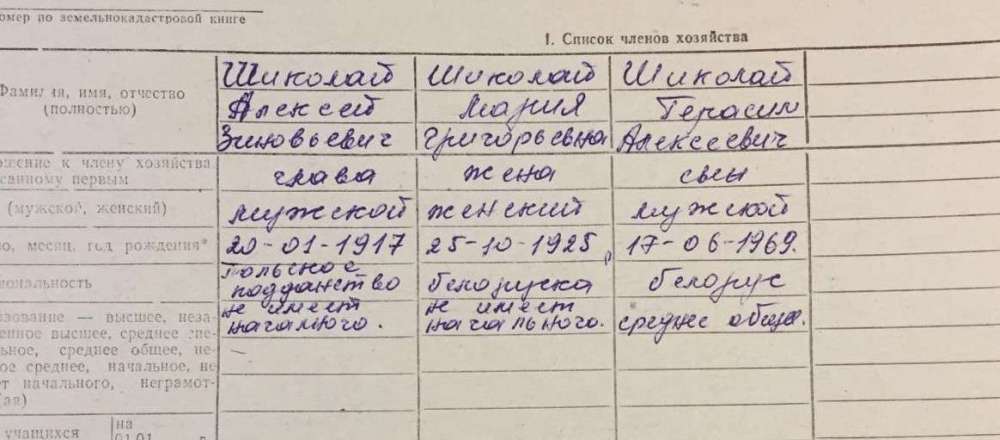 омер по земельнокадастровой книге
I. Список членов хозяйства
Фамилия, имя, отчество
(полностью)
Шиколай Шиколай Шиколай
Алексей Мария Герасим
Зиновьевич Григорьевна Алексеевич
ошение к члену хозяйства
санному первым
глава жена сын
(мужской, женский)
мужской женский мужской
ло, месяц, год рождения*
20-01-1917 25-10-1925 17-06-1969.
иональность
польское
подданство белоруска белорус
зование — высшее, неза-
енное высшее, среднее спе-
ьное, среднее общее, не-
ое среднее, начальное, не
ет начального, неграмот-
ая)
не имеет не имеет
начального. начального. среднее общее.
учащихся
на
01.01 г.